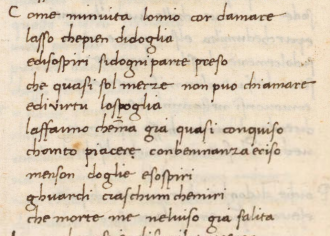 Come minvita lomio cor damare
lasso chepien didoglia
edisospiri sidogni parte preso
che quasi sol merze non puo chiamare
edivirtu lospoglia
laffanno chema gia quasi conquiso
chonto piacere conbennanza eciso
menson doglie esospiri
ghuardi ciaschum chemiri
che morte me nelviso gia salita